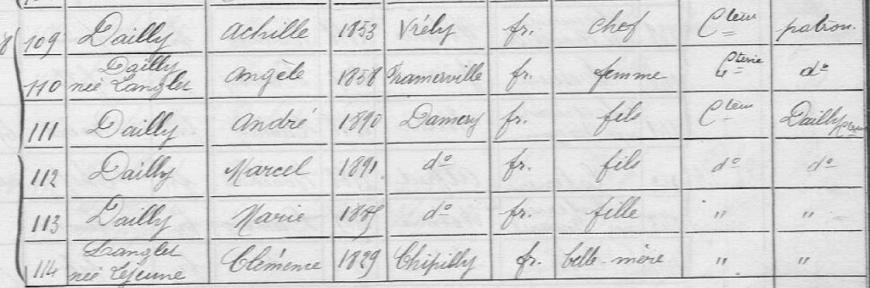 8 109 Dailly Achille 1853 Vrély fr. chef C^teur patron.
110 Dailly née Langlet Angèle 1858 Framerville fr. femme C^terie d°
111 Dailly André 1890 Damery fr. fils C^teur Dailly
112 Dailly Marcel 1891 d° fr. fils d° d°
113 Dailly Marie d° fr. fille " "
114 Langlet née Lejeune Clémence 1829 Chipilly fr. belle-mère " "